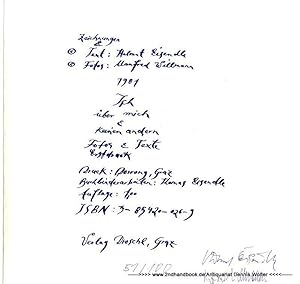 Zeichnungen
&
© Text: Helmut Eisendle
© Fotos: Manfred Willmann
1981
Ich
über mich
&
keinen andern
Fotos & Texte
Erstdruck
Druck: Graz
Buchbinderarbeiten: Thomas Eisendle
Auflage: 100
ISBN: 3-85420-026-9
Verlag Droschl, Graz
51/100
>>>> www.2ndhandbook.de Antiquariat Dennis Wolter <<<<